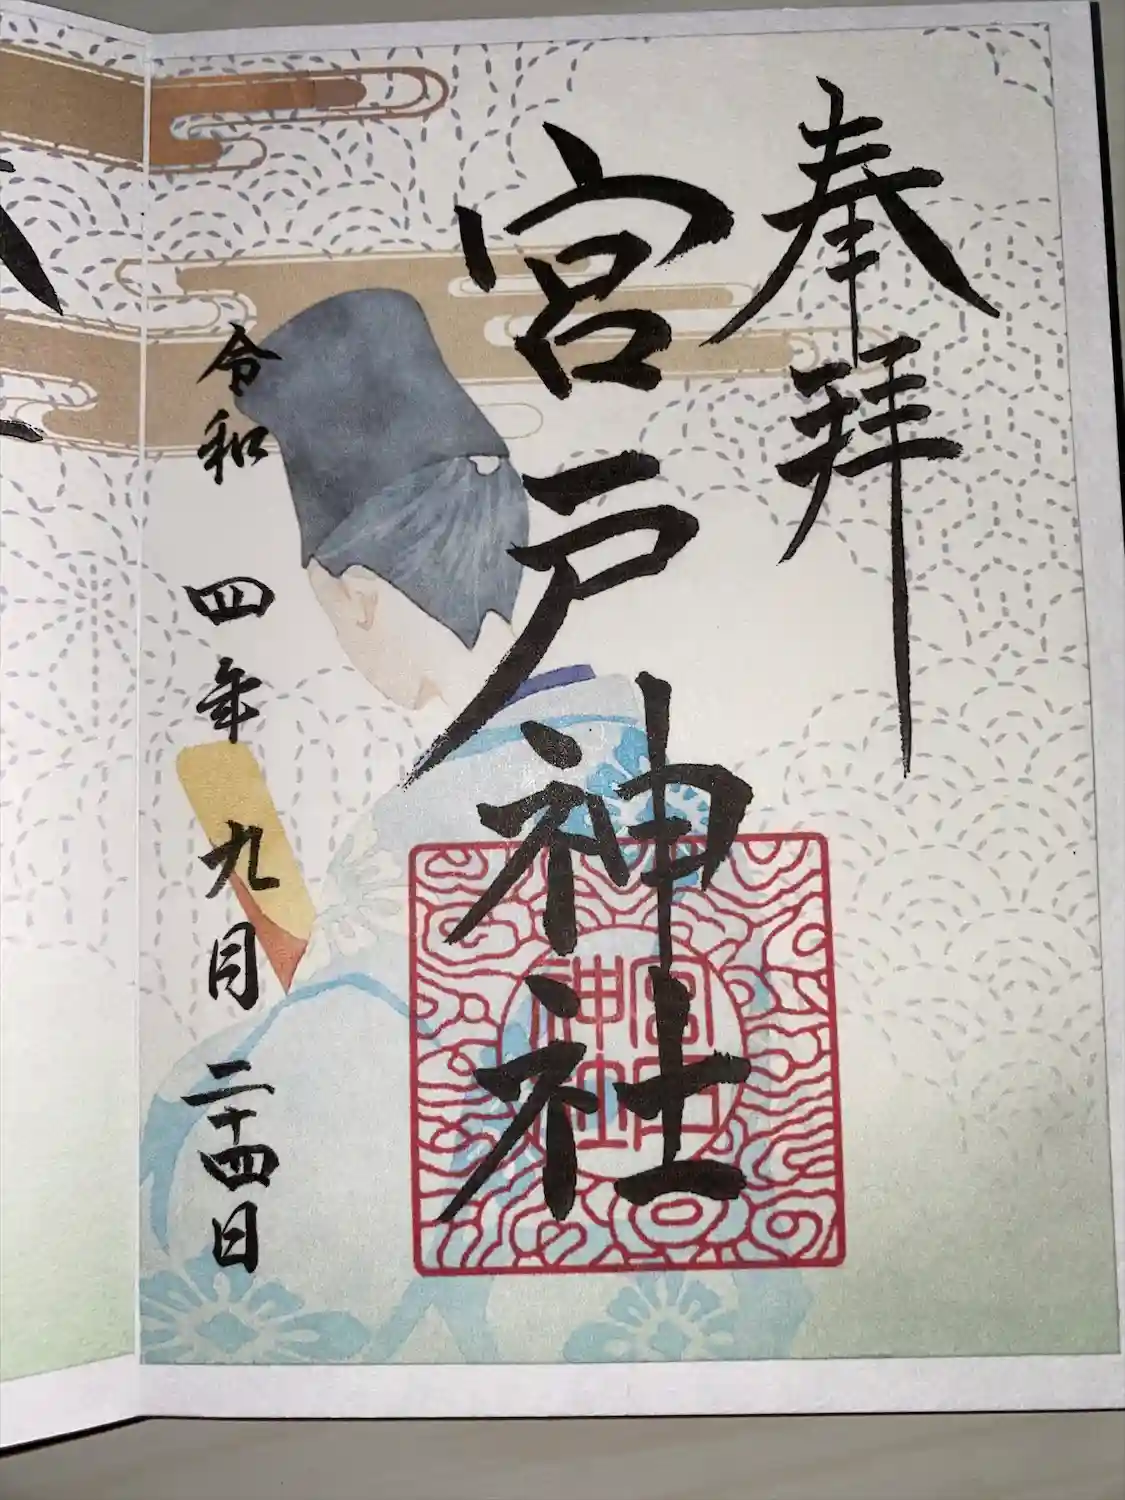 奉拝
宮戸神社
宮戸神社
令和四年九月二十四日